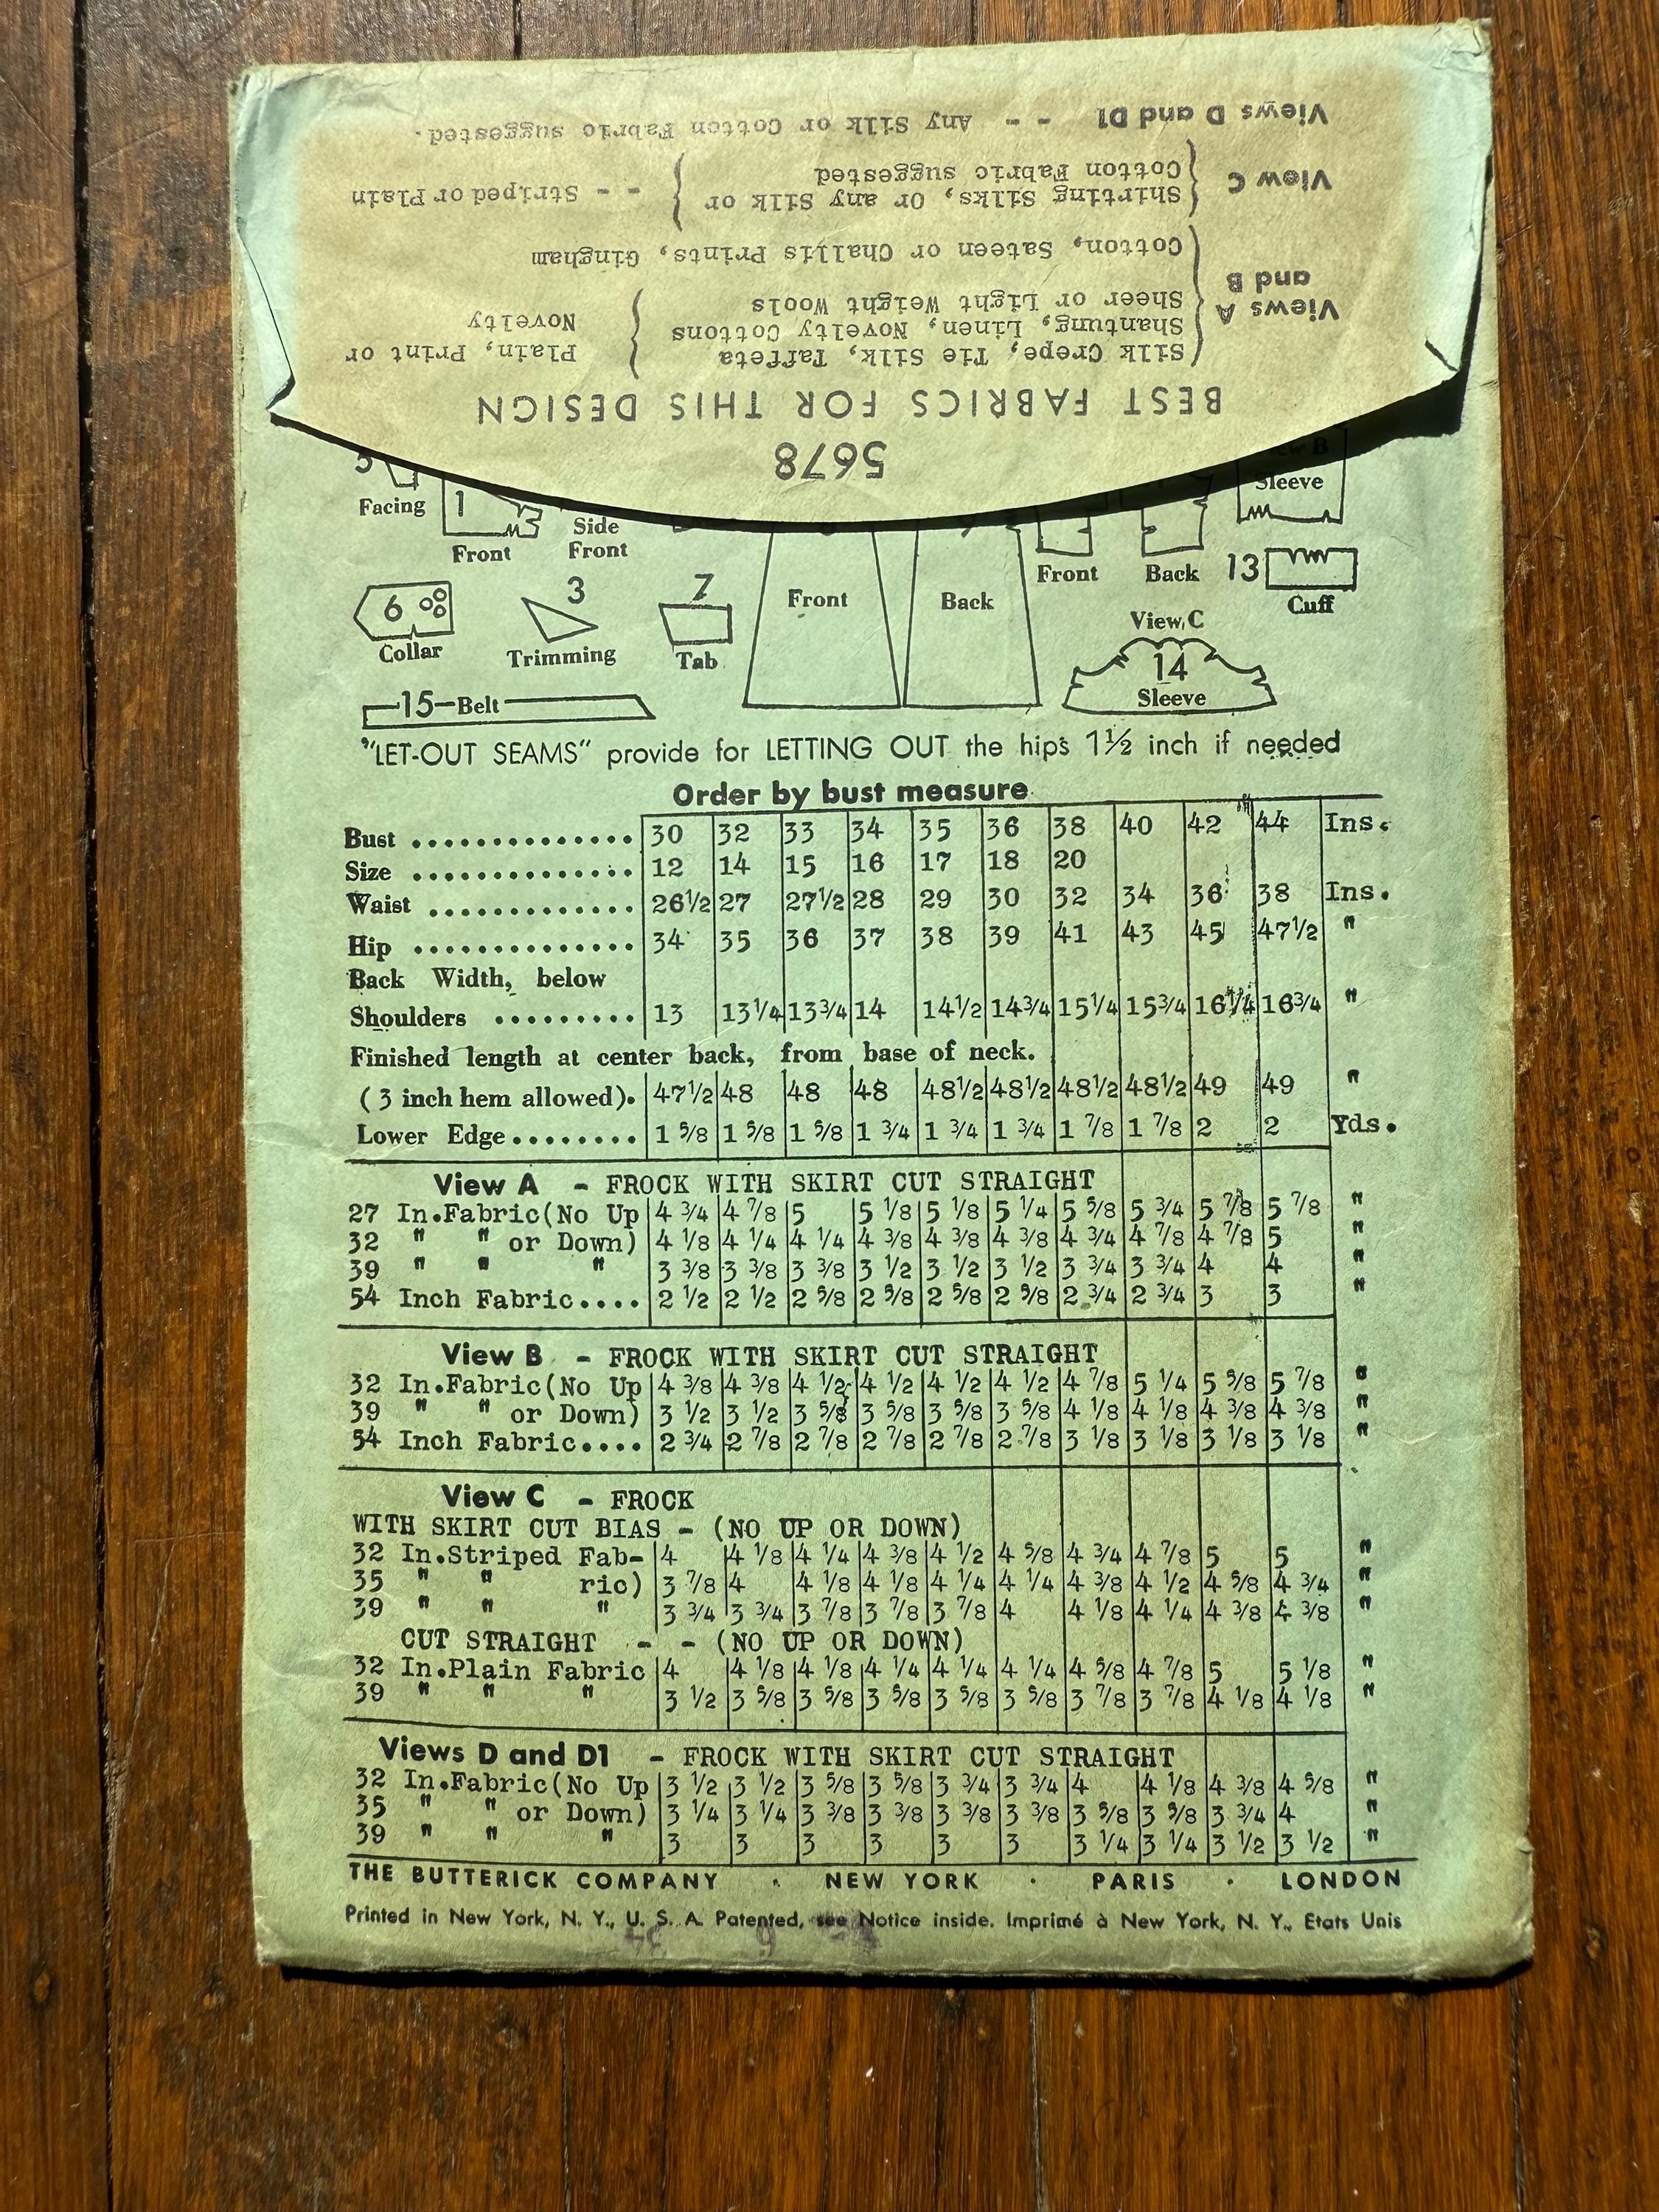 Views D and D1 - - Any Silk or Cotton Fabric suggested.
View C { Shirting Silks, Or any Silk or Cotton Fabric suggested } - - Striped or Plain
Views A and B { Silk Crepe, Tie Silk, Taffeta
Shantung, Linen, Novelty Cottons
Sheer or Light Weight Wools } Plain, Print or Novelty
Cotton, Sateen or Challis Prints, Gingham
BEST FABRICS FOR THIS DESIGN
5678
Facing
1
Front
Side Front
View B
Sleeve
Front
Back
13
Cuff
6
Collar
3
Trimming
7
Tab
Front
Back
View C
14
Sleeve
15-Belt
"LET-OUT SEAMS" provide for LETTING OUT the hips 1½ inch if needed
Order by bust measure
Bust .............. 30 32 33 34 35 36 38 40 42 44 Ins.
Size .............. 12 14 15 16 17 18 20
Waist ............. 26½ 27 27½ 28 29 30 32 34 36 38 Ins.
Hip .............. 34 35 36 37 38 39 41 43 45 47½ "
Back Width, below
Shoulders ......... 13 13¼ 13¾ 14 14½ 14¾ 15¼ 15¾ 16¼ 16¾ "
Finished length at center back, from base of neck.
(3 inch hem allowed). 47½ 48 48 48 48½ 48½ 48½ 48½ 49 49 "
Lower Edge........ 1 5/8 1 5/8 1 5/8 1 3/4 1 3/4 1 3/4 1 7/8 1 7/8 2 2 Yds.
View A - FROCK WITH SKIRT CUT STRAIGHT
27 In.Fabric(No Up 4 3/4 4 7/8 5 5 1/8 5 1/8 5 1/4 5 5/8 5 3/4 5 7/8 5 7/8 "
32 " " or Down) 4 1/8 4 1/4 4 1/4 4 3/8 4 3/8 4 3/8 4 3/4 4 7/8 4 7/8 5 "
39 " " " 3 3/8 3 3/8 3 3/8 3 1/2 3 1/2 3 1/2 3 3/4 3 3/4 4 4 "
54 Inch Fabric.... 2 1/2 2 1/2 2 5/8 2 5/8 2 5/8 2 5/8 2 3/4 2 3/4 3 3 "
View B - FROCK WITH SKIRT CUT STRAIGHT
32 In.Fabric(No Up 4 3/8 4 3/8 4 1/2 4 1/2 4 1/2 4 1/2 4 7/8 5 1/4 5 5/8 5 7/8 "
39 " " or Down) 3 1/2 3 1/2 3 5/8 3 5/8 3 5/8 3 5/8 4 1/8 4 1/8 4 3/8 4 3/8 "
54 Inch Fabric.... 2 3/4 2 7/8 2 7/8 2 7/8 2 7/8 2 7/8 3 1/8 3 1/8 3 1/8 3 1/8 "
View C - FROCK
WITH SKIRT CUT BIAS - (NO UP OR DOWN)
32 In.Striped Fab- 4 4 1/8 4 1/4 4 3/8 4 1/2 4 5/8 4 3/4 4 7/8 5 5 "
35 " " ric) 3 7/8 4 4 1/8 4 1/8 4 1/4 4 1/4 4 3/8 4 1/2 4 5/8 4 3/4 "
39 " " " 3 3/4 3 3/4 3 7/8 3 7/8 3 7/8 4 4 1/8 4 1/4 4 3/8 4 3/8 "
CUT STRAIGHT - - (NO UP OR DOWN)
32 In.Plain Fabric 4 4 1/8 4 1/8 4 1/4 4 1/4 4 1/4 4 5/8 4 7/8 5 5 1/8 "
39 " " " 3 1/2 3 5/8 3 5/8 3 5/8 3 5/8 3 5/8 3 7/8 3 7/8 4 1/8 4 1/8 "
Views D and D1 - FROCK WITH SKIRT CUT STRAIGHT
32 In.Fabric(No Up 3 1/2 3 1/2 3 5/8 3 5/8 3 3/4 3 3/4 4 4 1/8 4 3/8 4 5/8 "
35 " " or Down) 3 1/4 3 1/4 3 3/8 3 3/8 3 3/8 3 3/8 3 5/8 3 5/8 3 3/4 4 "
39 " " " 3 3 3 3 3 3 3 1/4 3 1/4 3 1/2 3 1/2 "
THE BUTTERICK COMPANY · NEW YORK · PARIS · LONDON
Printed in New York, N. Y., U. S. A. Patented, see Notice inside. Imprimé à New York, N. Y., Etats Unis